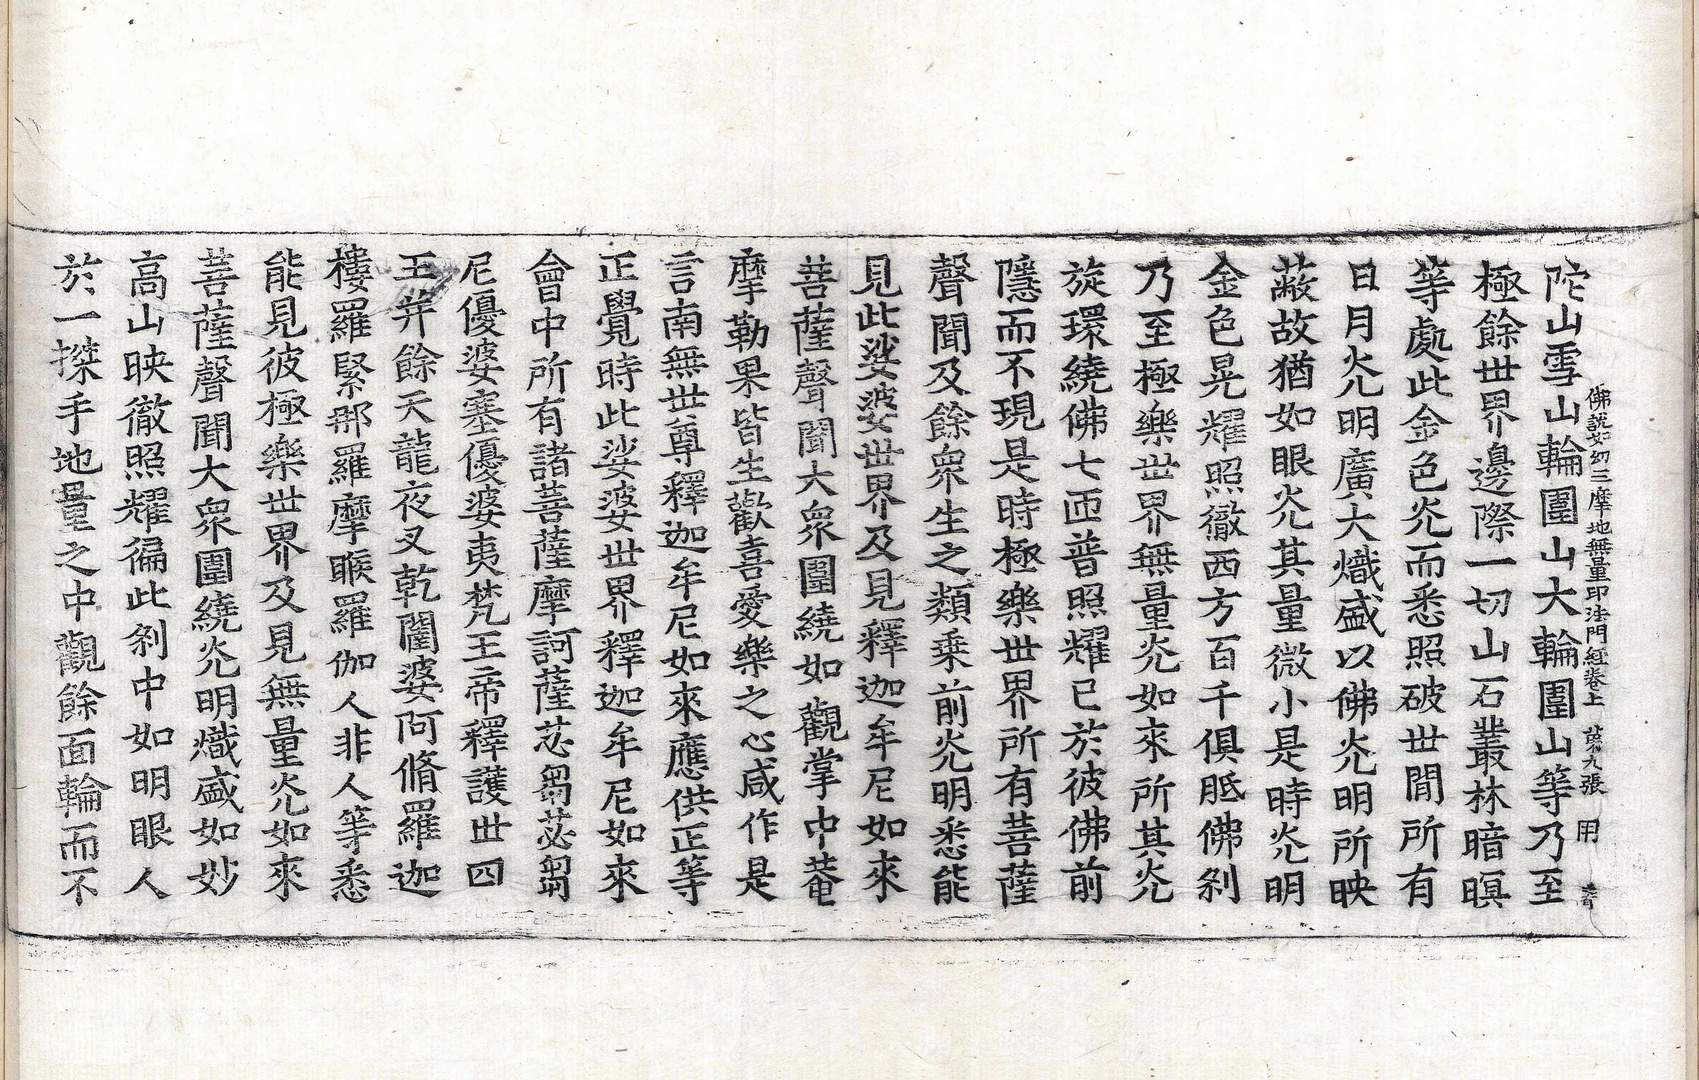 佛說如幻三摩地無量印法門經卷上 第九張 用
陀山雪山輪圍山大輪圍山等乃至
極餘世界邊際一切山石叢林暗暝
等處此金色光而悉照破世間所有
日月光明廣大熾盛以佛光明所映
蔽故猶如眼光其量微小是時光明
金色晃耀照徹西方百千俱胝佛剎
乃至極樂世界無量光如來所其光
旋環繞佛七帀普照耀已於彼佛前
隱而不現是時極樂世界所有菩薩
聲聞及餘衆生之類乘前光明悉能
見此娑婆世界及見釋迦牟尼如來
菩薩聲聞大衆圍繞如觀掌中菴
摩勒果皆生歡喜愛樂之心咸作是
言南無世尊釋迦牟尼如來應供正等
正覺時此娑婆世界釋迦牟尼如來
會中所有諸菩薩摩訶薩苾芻苾芻
尼優婆塞優婆夷梵王帝釋護世四
王幷餘天龍夜叉乾闥婆阿脩羅迦
樓羅緊那羅摩睺羅伽人非人等悉
能見彼極樂世界及見無量光如來
菩薩聲聞大衆圍繞光明熾盛如妙
高山映徹照耀徧此剎中如明眼人
於一搩手地量之中觀餘面輪而不